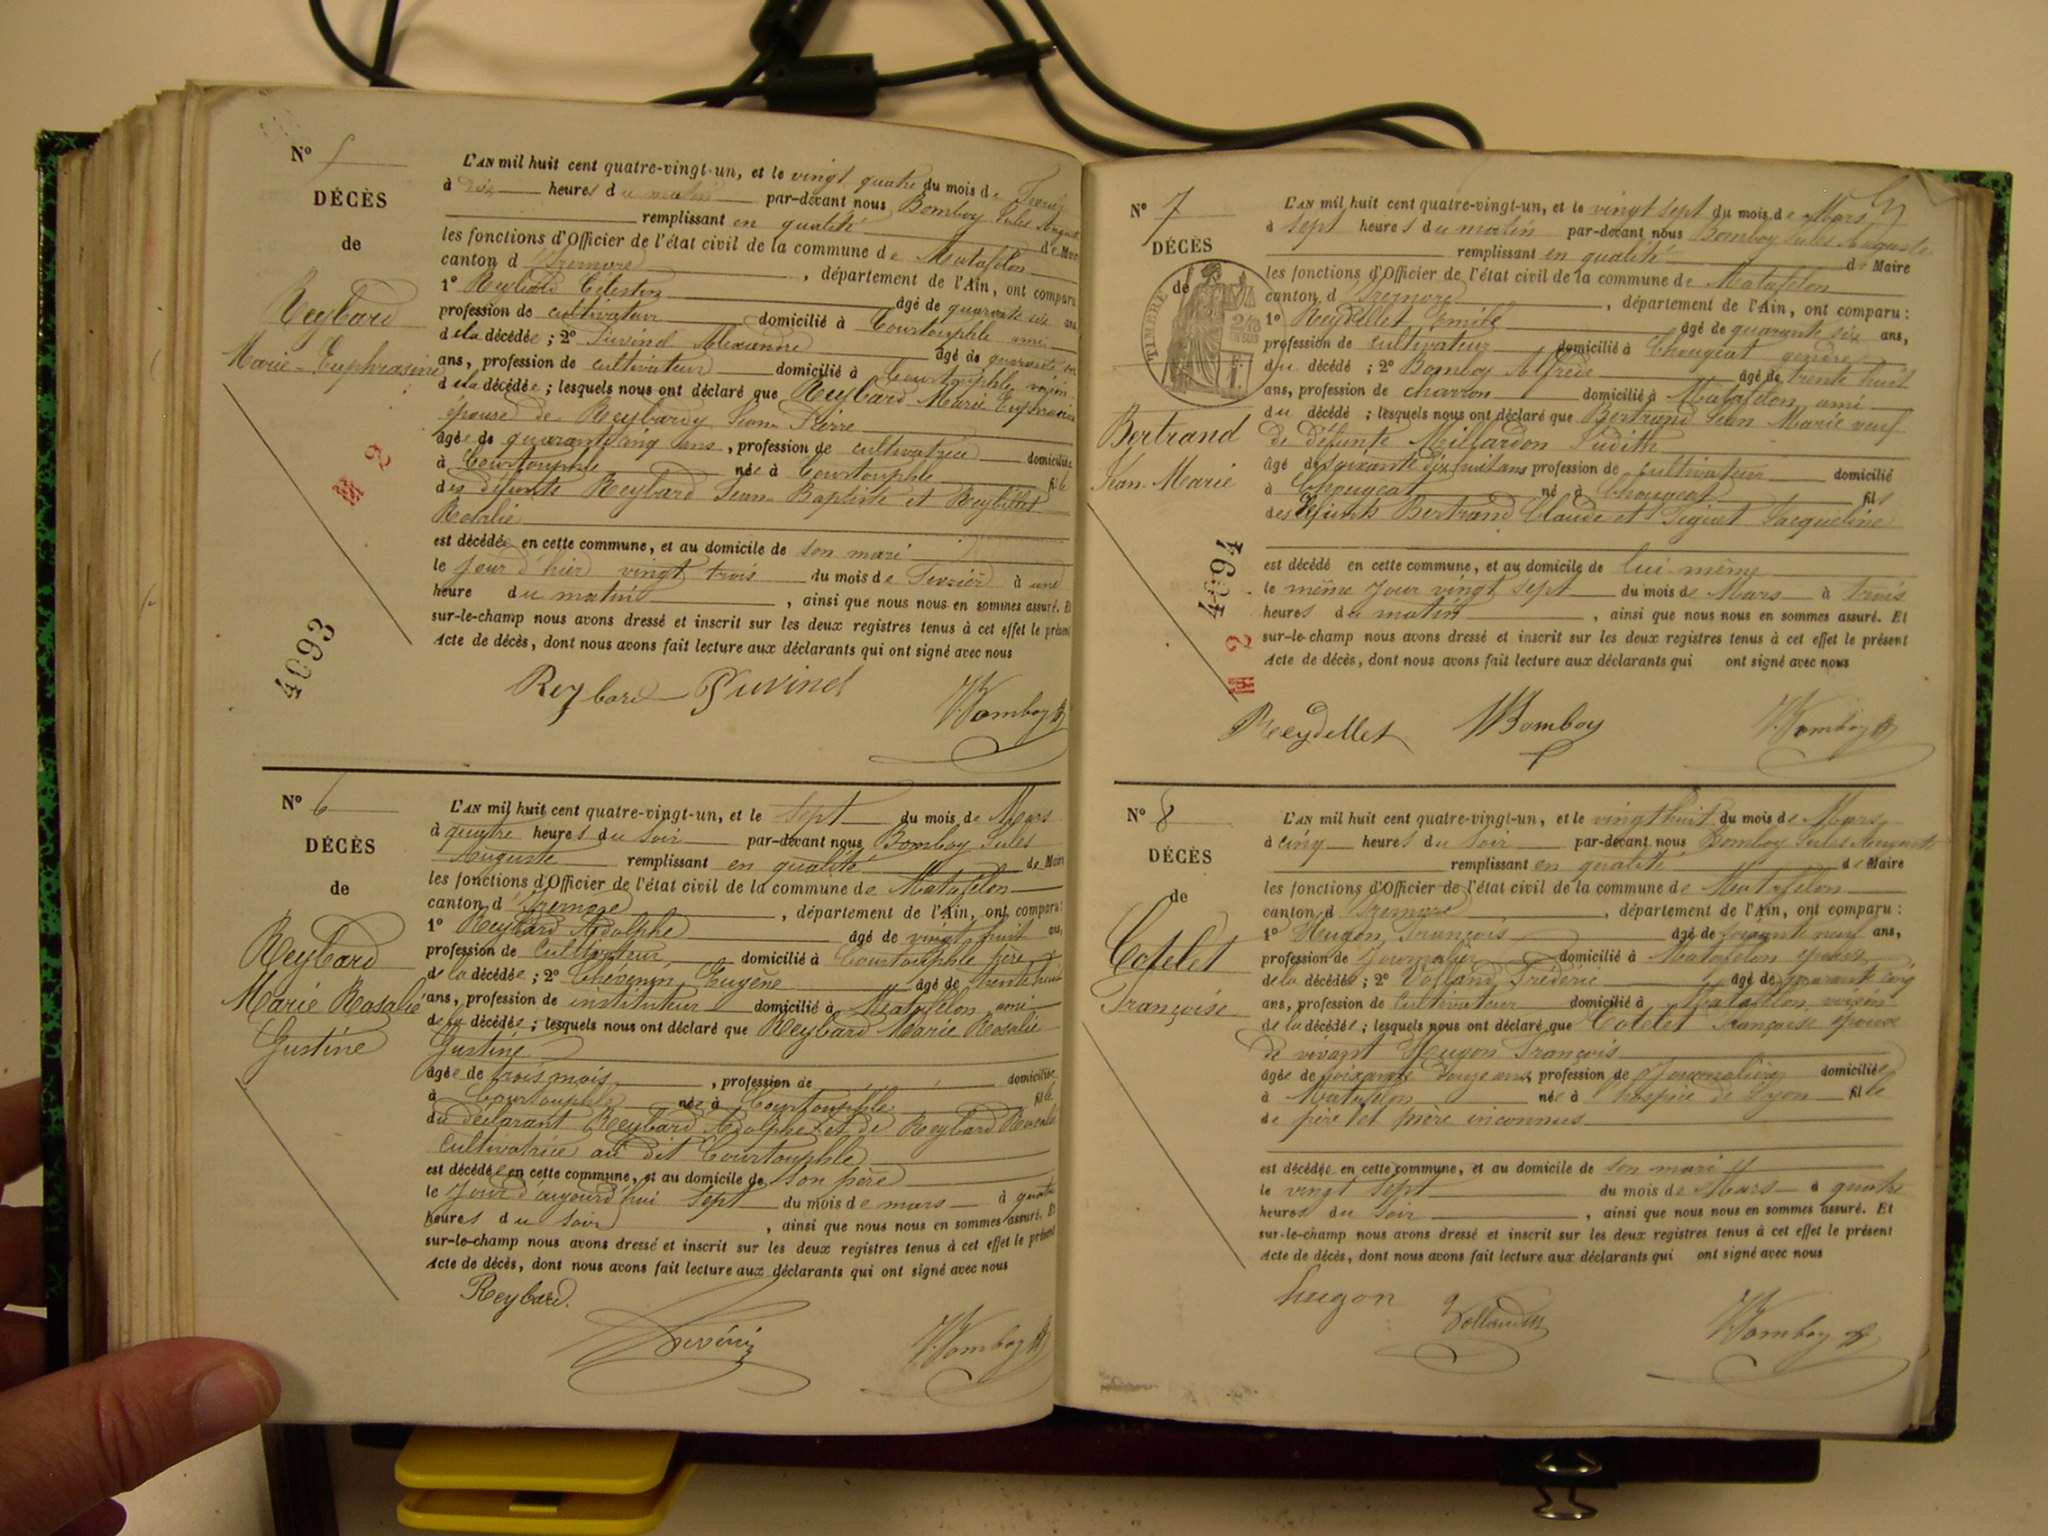 N° 5
DÉCÈS
de
Reybard
Marie-Euphrasine
M 2
4093
L'AN mil huit cent quatre-vingt-un, et le vingt quatre du mois de Février
à dix heures du matin par-devant nous Bomboy Jules Auguste
remplissant en qualité de Maire
les fonctions d'Officier de l'état civil de la commune de Matafelon
canton d'Izernore, département de l'Ain, ont comparu
1° Reybard Célestin âgé de quarante six ans
profession de cultivateur domicilié à Courtouphle ami
de la décédée; 2° Juvinel Alexandre âgé de quarante
ans, profession de cultivateur domicilié à Courtouphle, voisin
de la décédée; lesquels nous ont déclaré que Reybard Marie Euphrasine
épouse de Reybard Jean Pierre
âgée de quarante cinq ans, profession de cultivatrice domiciliée
à Courtouphle née à Courtouphle fille
des défunts Reybard Jean Baptiste et Reydellet
Rosalie
est décédée en cette commune, et au domicile de son mari
le jour d'hier vingt trois du mois de Février à une
heure du matin, ainsi que nous nous en sommes assuré. Et
sur-le-champ nous avons dressé et inscrit sur les deux registres tenus à cet effet le présent
Acte de décès, dont nous avons fait lecture aux déclarants qui ont signé avec nous
Reybard Juvinel Bomboy
N° 6
DÉCÈS
de
Reybard
Marie Rosalie
Justine
L'AN mil huit cent quatre-vingt-un, et le sept du mois de Mars
à quatre heures du soir par-devant nous Bomboy Jules
Auguste remplissant en qualité de Maire
les fonctions d'Officier de l'état civil de la commune de Matafelon
canton d'Izernore, département de l'Ain, ont comparu:
1° Reybard Adolphe âgé de vingt huit ans,
profession de Cultivateur domicilié à Courtouphle père
de la décédée; 2° Thévenin Eugène âgé de trente huit
ans, profession de instituteur domicilié à Matafelon ami
de la décédée; lesquels nous ont déclaré que Reybard Marie Rosalie
Justine
âgée de trois mois, profession de domiciliée
à Courtouphle née à Courtouphle fille
du déclarant Reybard Adolphe et de Reybard
cultivatrice au dit Courtouphle
est décédée en cette commune, et au domicile de son père
le jour d'aujourd'hui sept du mois de mars à quatre
heures du soir, ainsi que nous nous en sommes assuré. Et
sur-le-champ nous avons dressé et inscrit sur les deux registres tenus à cet effet le présent
Acte de décès, dont nous avons fait lecture aux déclarants qui ont signé avec nous
Reybard. Bomboy
N° 7
DÉCÈS
de
TIMBRE
Bertrand
Jean-Marie
4094
M 2
L'AN mil huit cent quatre-vingt-un, et le vingt sept du mois de Mars
à sept heures du matin par-devant nous Bomboy Jules Auguste
remplissant en qualité de Maire
les fonctions d'Officier de l'état civil de la commune de Matafelon
canton d'Izernore, département de l'Ain, ont comparu:
1° Reydellet Emile âgé de quarante six ans,
profession de cultivateur domicilié à Chougeat gendre
du décédé; 2° Bomboy Alfrède âgé de trente huit
ans, profession de charron domicilié à Matafelon, ami
du décédé; lesquels nous ont déclaré que Bertrand Jean Marie veuf
de défunte Millardon Judith
âgé de soixante dix huit ans profession de cultivateur domicilié
à Chougeat né à Chougeat fils
des défunts Bertrand Claude et Jacqueline
est décédé en cette commune, et au domicile de lui même
le même jour vingt sept du mois de Mars à trois
heures du matin, ainsi que nous nous en sommes assuré. Et
sur-le-champ nous avons dressé et inscrit sur les deux registres tenus à cet effet le présent
Acte de décès, dont nous avons fait lecture aux déclarants qui ont signé avec nous
Reydellet Bomboy Bomboy
N° 8
DÉCÈS
de
Cotelet
Françoise
L'AN mil huit cent quatre-vingt-un, et le vingt huit du mois de Mars
à cinq heures du soir par-devant nous Bomboy Jules Auguste
remplissant en qualité de Maire
les fonctions d'Officier de l'état civil de la commune de Matafelon
canton d'Izernore, département de l'Ain, ont comparu:
1° Hugon François âgé de soixante neuf ans,
profession de Journalier domicilié à Matafelon époux
de la décédée; 2° Volland Frédéric âgé de quarante cinq
ans, profession de Cultivateur domicilié à Matafelon, voisin
de la décédée; lesquels nous ont déclaré que Cotelet Françoise épouse
de vivant Hugon François
âgée de soixante douze ans, profession de Journalière domiciliée
à Matafelon née à hospice de Lyon fille
de père et mère inconnus
est décédée en cette commune, et au domicile de son mari
le vingt sept du mois de Mars à quatre
heures du soir, ainsi que nous nous en sommes assuré. Et
sur-le-champ nous avons dressé et inscrit sur les deux registres tenus à cet effet le présent
Acte de décès, dont nous avons fait lecture aux déclarants qui ont signé avec nous
hugon Volland Bomboy